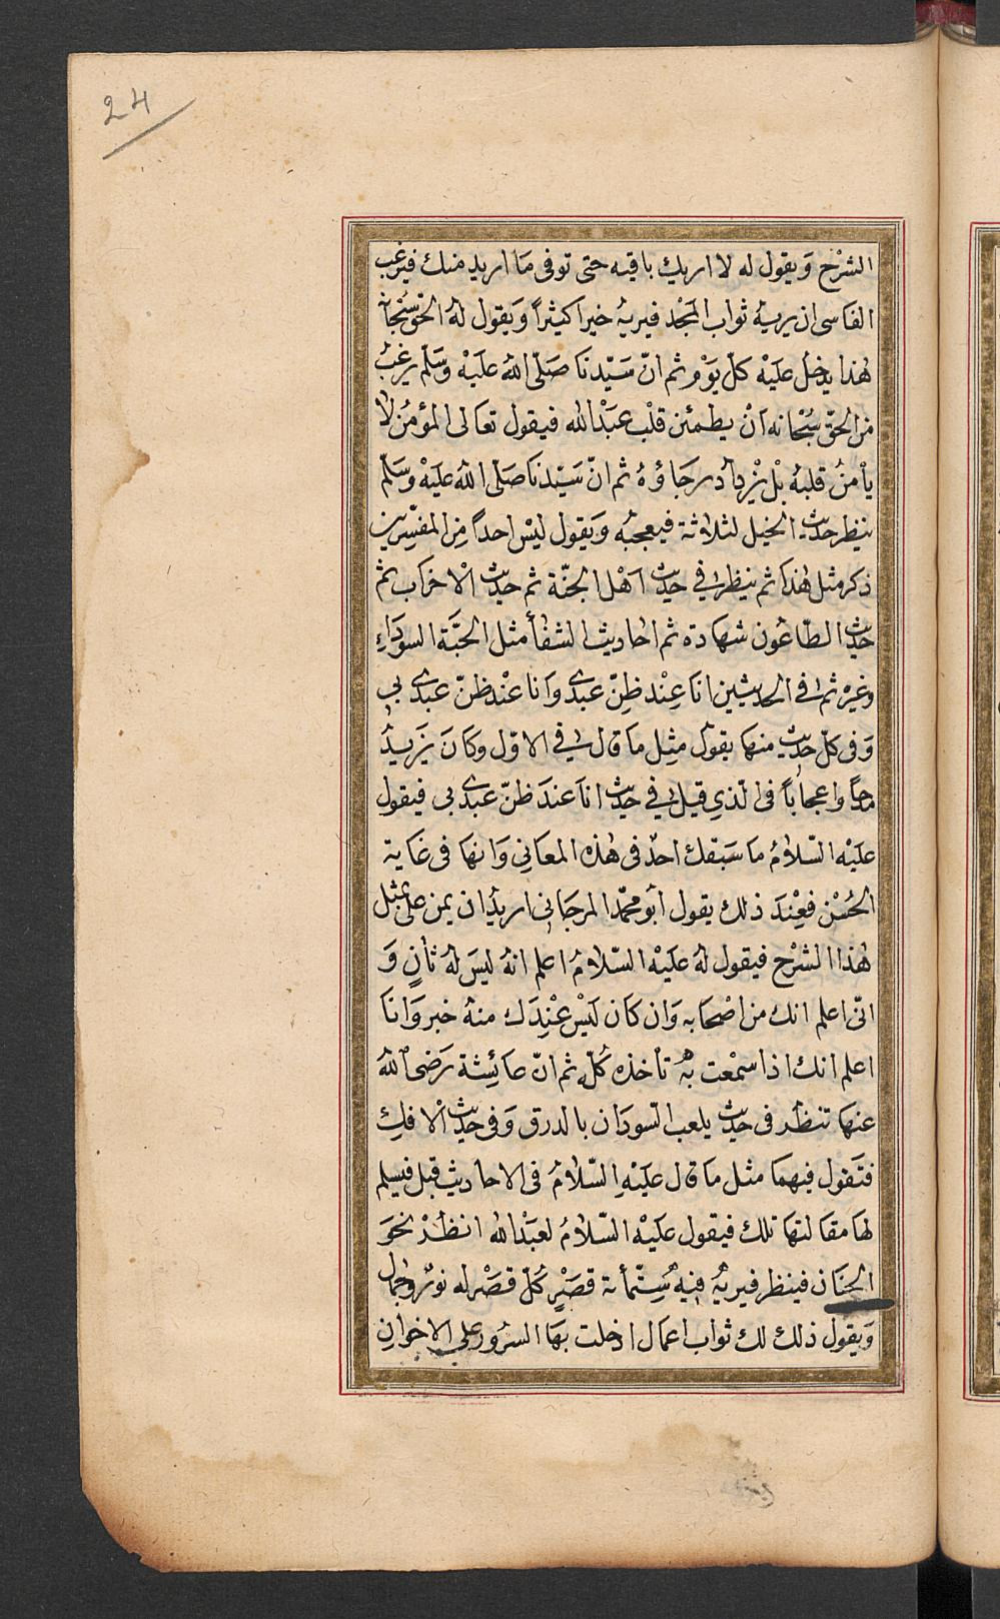 24
الشرْح وَيقول له لا اريك باقيه حتى توفى مَا اريد منك فيرغب
الفَاسى ان يريهُ ثواب المجْد فيريهُ خيرا كثيراً وَيقول لهُ الحق سُبْحانه
هٰذا يدخل علَيْه كلّ يَوْم ثم انّ سَيّدنَا صَلّى اللّٰه علَيْه وسَلّم يرغبُ
من الحَقّ سُبْحانه اَنْ يطمئن قلْب عبْدالله فيقول تعَالى المؤمُن لا
يأمنُ قلبهُ بْل يْزدادُ رجَاؤهُ ثم انّ سَيّدنَا صَلّى اللّٰه علَيْه وسَلّم
ينظر حديث الخيل لثلاثة فيعجبُه وَيقول ليْس احداً مِن المفسّرين
ذكر مثل هٰذا ثم ينظر في حديث اَهْل الجنّة ثم حديث الاخرَاب ثم
حديث الطّاعُون شهَادة ثم احَاديث الشفأ مثل الحَبّة السودَاءِ
وغيره ثم في الحديثين انَا عِنْد ظنّ عبدى وَانا عنْد ظنّ عبدى بى
وَفى كلّ حديث منهَا يقول مثِل مَا قال في الاوّل وكَانَ يزيدُ
مدحاً واعجاباً فى الّذي قيل في حديث انَا عندَ ظنّ عبدى بى فيقول
علَيْه السّلامُ مَا سَبَقك احدٌ فى هٰذه المعَاني وَانهَا فى غَاية
الحُسْن فعِنْدَ ذلك يقول اَبُو محمّد المرجَانى اريدُ ان يمن على بمثل
هٰذا الشرْح فيقول لهُ علَيْه السّلامُ اعلم انهُ ليسَ لهُ ثانٍ وَ
انّى اعلم انك من اصْحَابه وَان كان لَيْس عْندَك منهُ خبر وَانَا
اعلم انك اذا سمْعت بهِ تأخذه كُلّه ثم انّ عائِشة رَضى اللّٰه
عنهَا تنظر فى حديث يلعب السّودَان بالدرق وَفى حديث الافك
فتَقول فيهمَا مثل مَا قال علَيْه السّلامُ فى الاحَاديث قبل فيسلم
لهَا مقَالتهَا تلك فيقول علَيْه السّلامُ لعبْدالله انظْر نحوَ
الجنَان فينظر فيريهُ فيهِ سِتّمأئة قصَرْ كُلّ قصْر له نورٌ وجمال
وَيقول ذلك لك ثواب اعمَال ادخلت بهَا السرُور على الاخوان